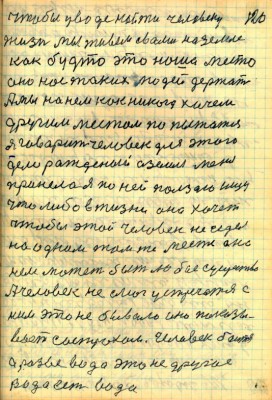 чтобы уводе найти человеку 120
жизн мы живем свами на земле
как будто это наша место
оно нас таких людей держат
Амы на нем как никого хочем
другим местом по пытатся
я говарит человек для этого
дела рожденый аземля меня
принела я по ней ползаю ищу
что либо в жизни оно хочет
чтобы этот человек не седел
на одном том же месте она
нем может быт любое существо
Ачеловек не смог устречатся с
ним это не бывало оно показы-
вает сострохом. Человек боится
а разве вода это не другое
вода ест вода